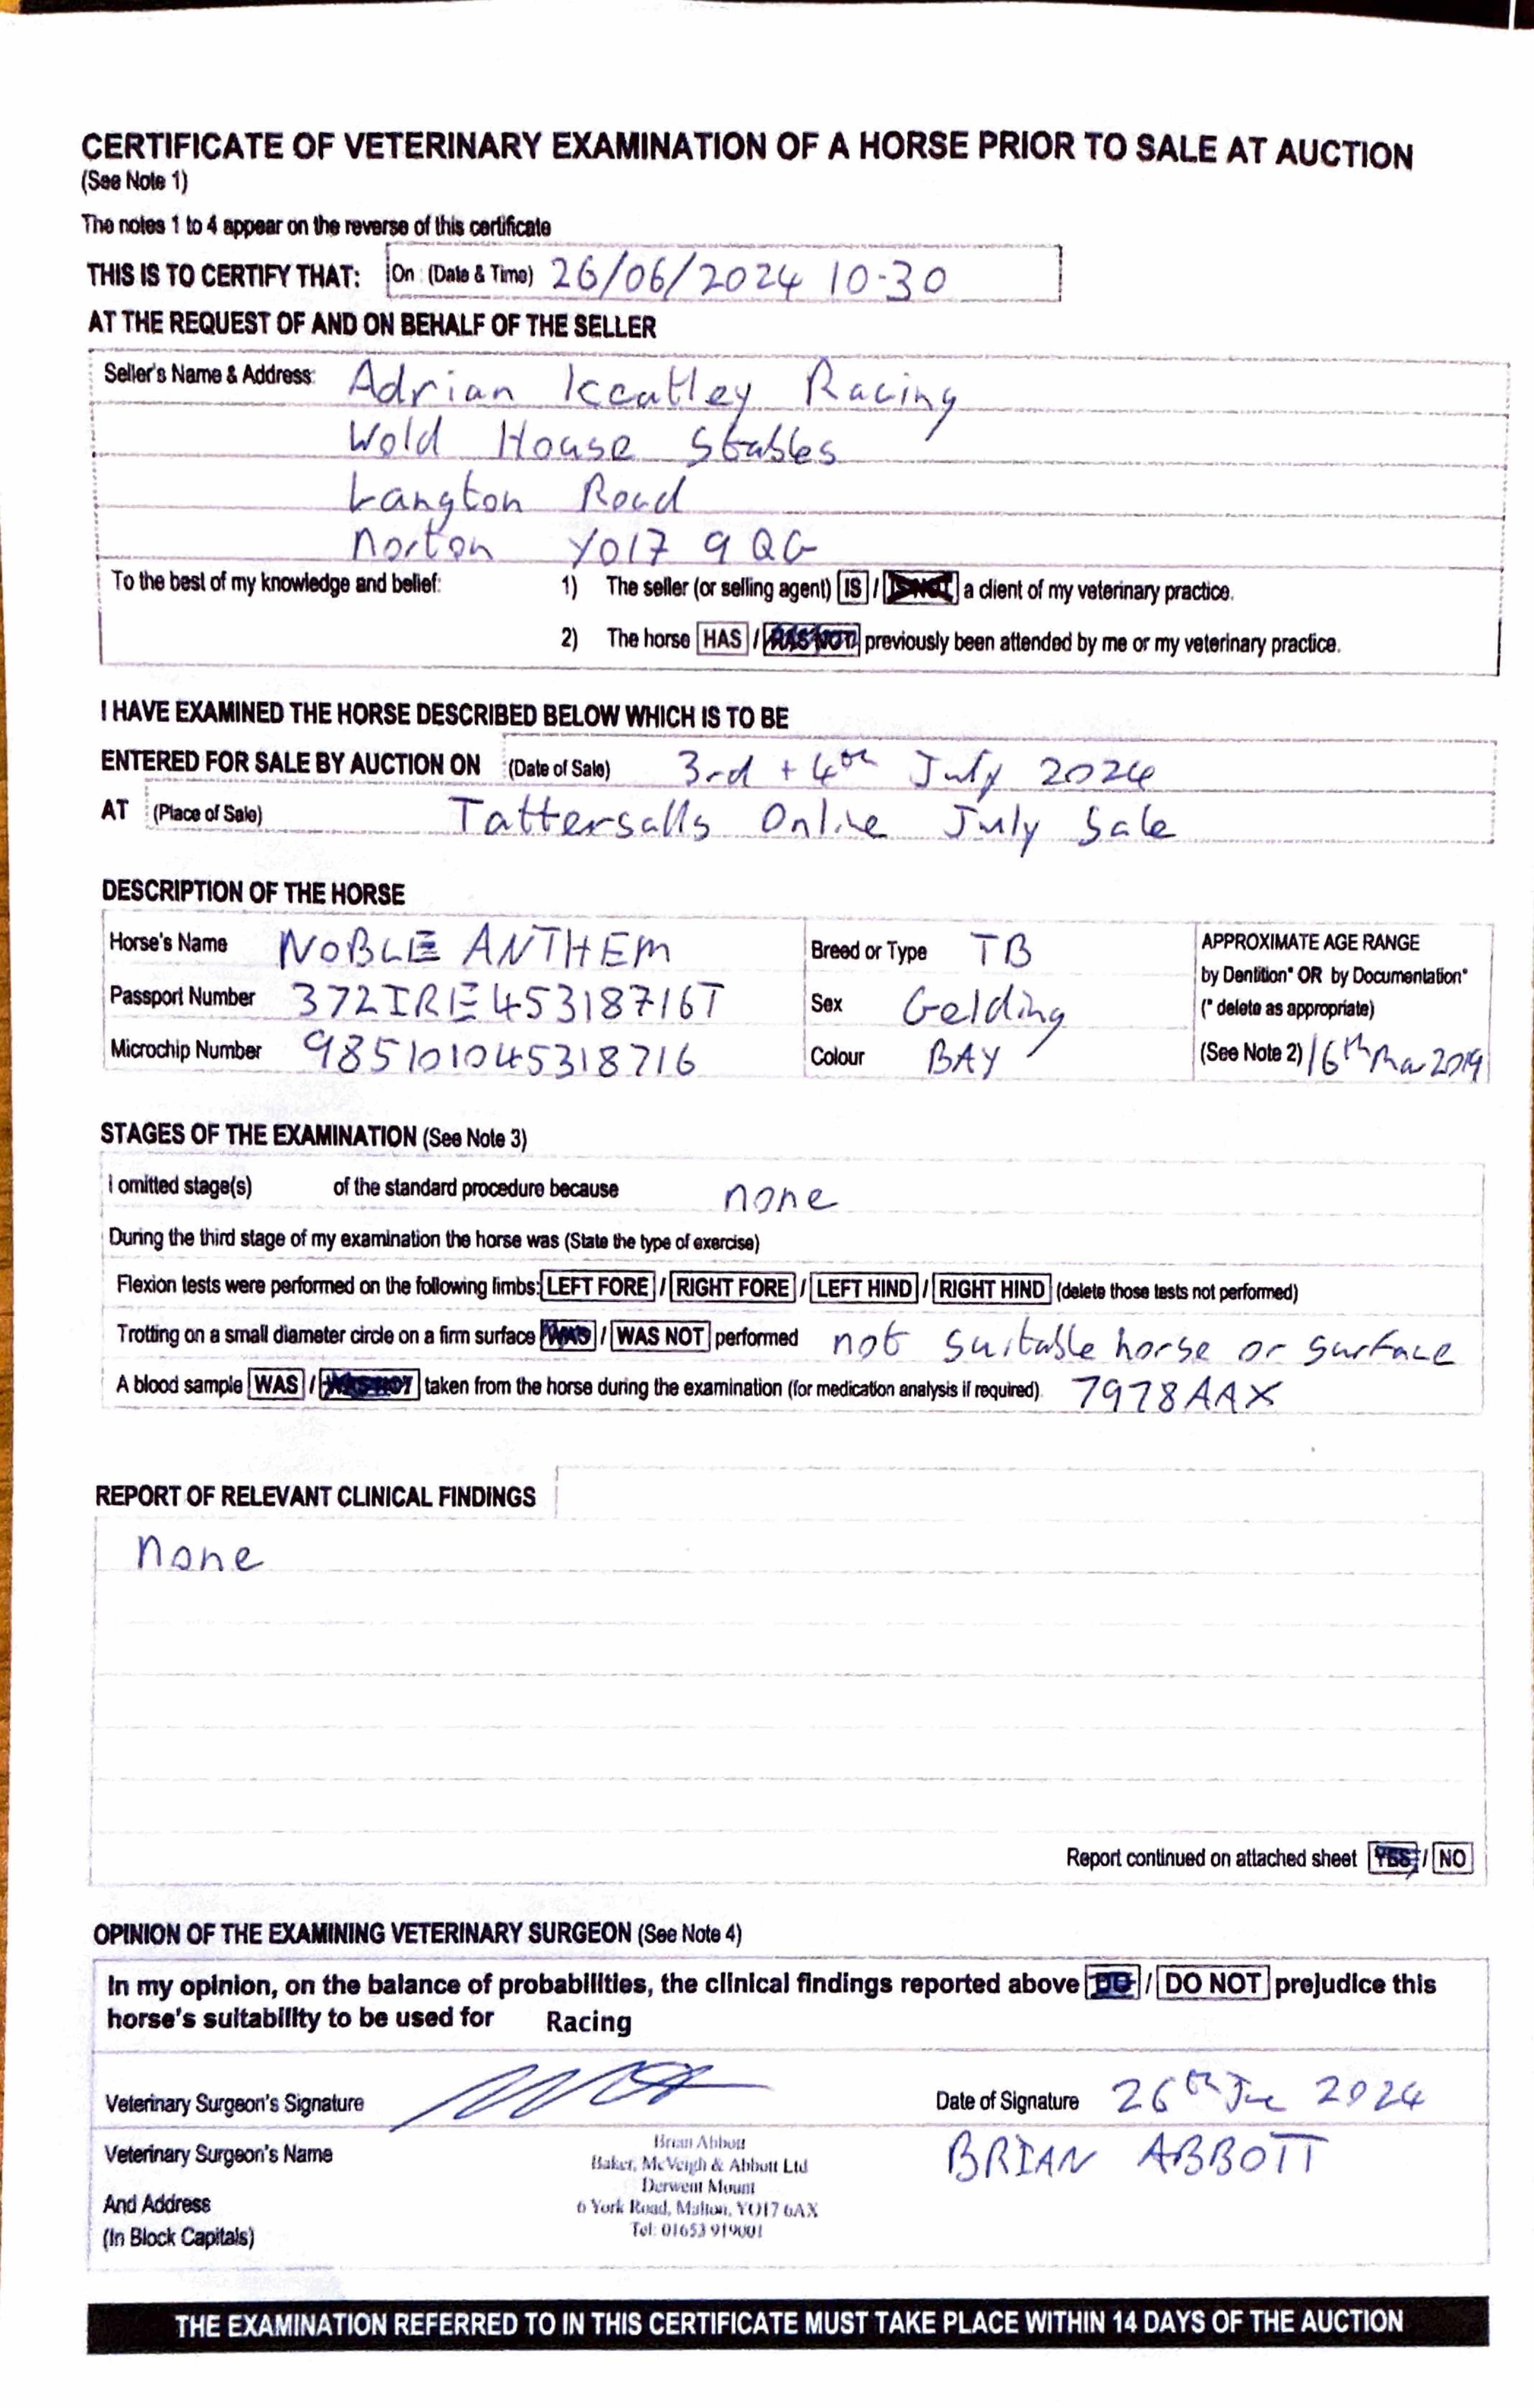 CERTIFICATE OF VETERINARY EXAMINATION OF A HORSE PRIOR TO SALE AT AUCTION
(See Note 1)
The notes 1 to 4 appear on the reverse of this certificate
THIS IS TO CERTIFY THAT: On : (Date & Time) 26/06/2024 10-30
AT THE REQUEST OF AND ON BEHALF OF THE SELLER
Seller's Name & Address: Adrian Keatley Racing
Wold House Stables
Langton Road
Norton YO17 9QG
To the best of my knowledge and belief: 1) The seller (or selling agent) IS / IS NOT a client of my veterinary practice.
2) The horse HAS / HAS NOT previously been attended by me or my veterinary practice.
I HAVE EXAMINED THE HORSE DESCRIBED BELOW WHICH IS TO BE
ENTERED FOR SALE BY AUCTION ON (Date of Sale) 3rd + 4th July 2024
AT (Place of Sale) Tattersalls Online July Sale
DESCRIPTION OF THE HORSE
Horse's Name NOBLE ANTHEM Breed or Type TB APPROXIMATE AGE RANGE
by Dentition* OR by Documentation*
Passport Number 372IRE45318716T Sex Gelding (* delete as appropriate)
Microchip Number 985101045318716 Colour BAY (See Note 2) 16th Mar 2019
STAGES OF THE EXAMINATION (See Note 3)
I omitted stage(s) of the standard procedure because none
During the third stage of my examination the horse was (State the type of exercise)
Flexion tests were performed on the following limbs: LEFT FORE / RIGHT FORE / LEFT HIND / RIGHT HIND (delete those tests not performed)
Trotting on a small diameter circle on a firm surface WAS / WAS NOT performed not suitable horse or surface
A blood sample WAS / WAS NOT taken from the horse during the examination (for medication analysis if required). 7978AAX
REPORT OF RELEVANT CLINICAL FINDINGS
none
Report continued on attached sheet YES / NO
OPINION OF THE EXAMINING VETERINARY SURGEON (See Note 4)
In my opinion, on the balance of probabilities, the clinical findings reported above DO / DO NOT prejudice this
horse's suitability to be used for Racing
Veterinary Surgeon's Signature Date of Signature 26th Jue 2024
Veterinary Surgeon's Name Brian Abbott BRIAN ABBOTT
Baker, McVeigh & Abbott Ltd
Derwent Mount
And Address 6 York Road, Malton, YO17 6AX
(In Block Capitals) Tel: 01653 919001
THE EXAMINATION REFERRED TO IN THIS CERTIFICATE MUST TAKE PLACE WITHIN 14 DAYS OF THE AUCTION